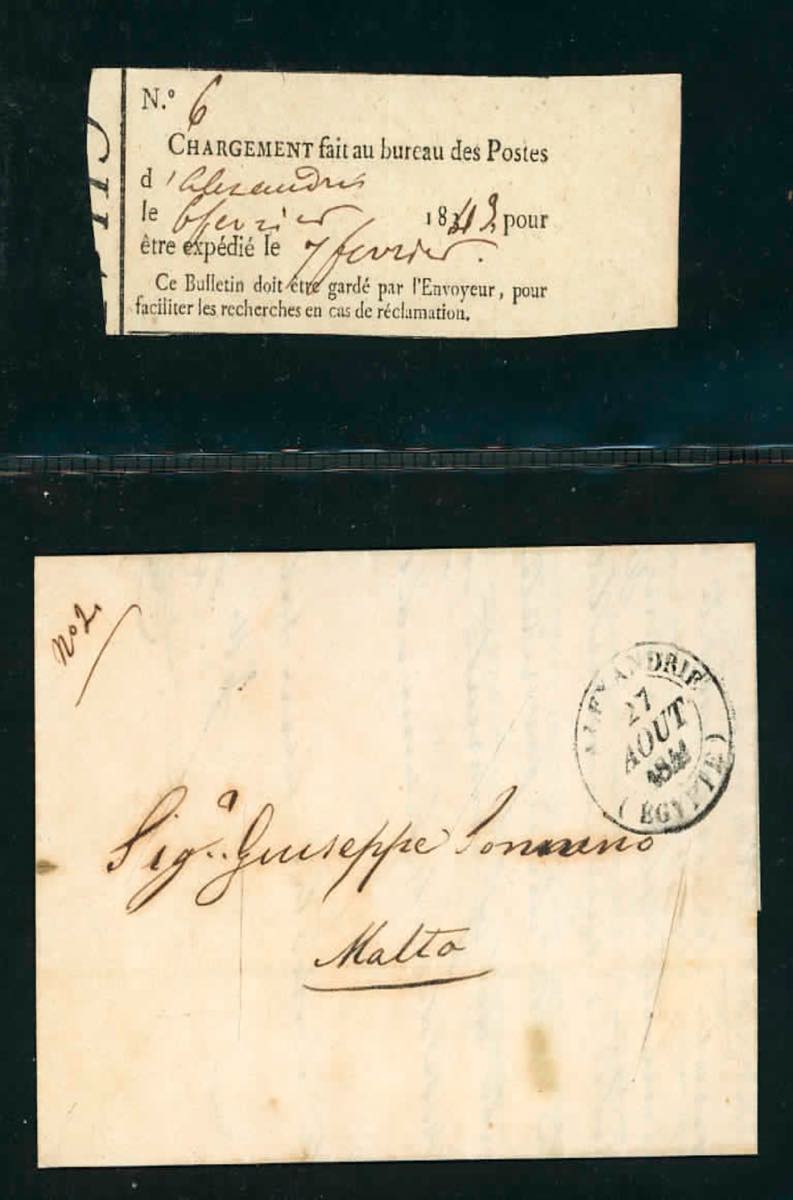 N.º 6
CHARGEMENT fait au bureau des Postes
d'alexandrie
le 6 fevrier 1842 pour
être expédié le 7 fevrier.
Ce Bulletin doit être gardé par l'Envoyeur, pour
faciliter les recherches en cas de réclamation.
Nº 2
ALEXANDRIE
27
AOUT
(EGYPTE)
Sig.ª Giuseppe
Malta